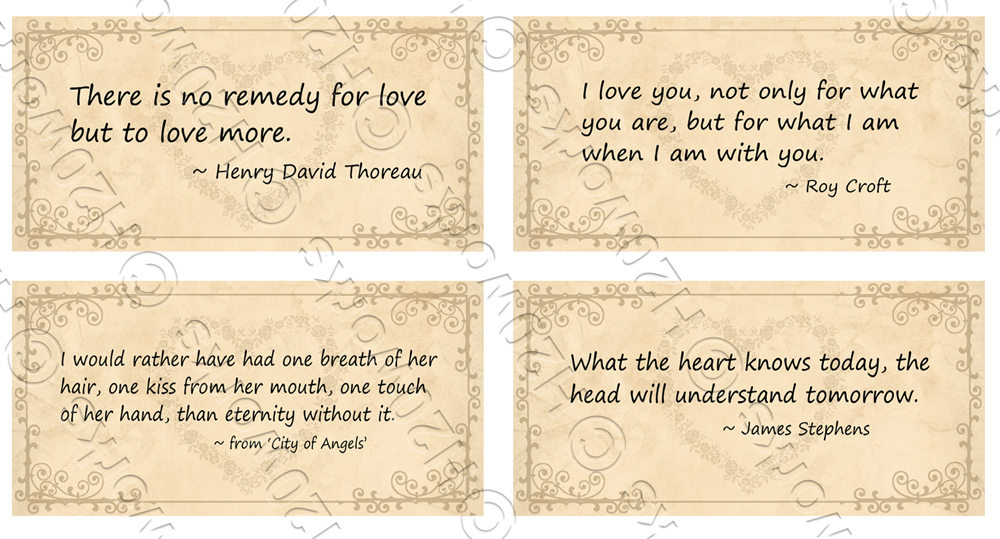 There is no remedy for love
but to love more.
~ Henry David Thoreau
I love you, not only for what
you are, but for what I am
when I am with you.
~ Roy Croft
I would rather have had one breath of her
hair, one kiss from her mouth, one touch
of her hand, than eternity without it.
~ from ‘City of Angels’
What the heart knows today, the
head will understand tomorrow.
~ James Stephens